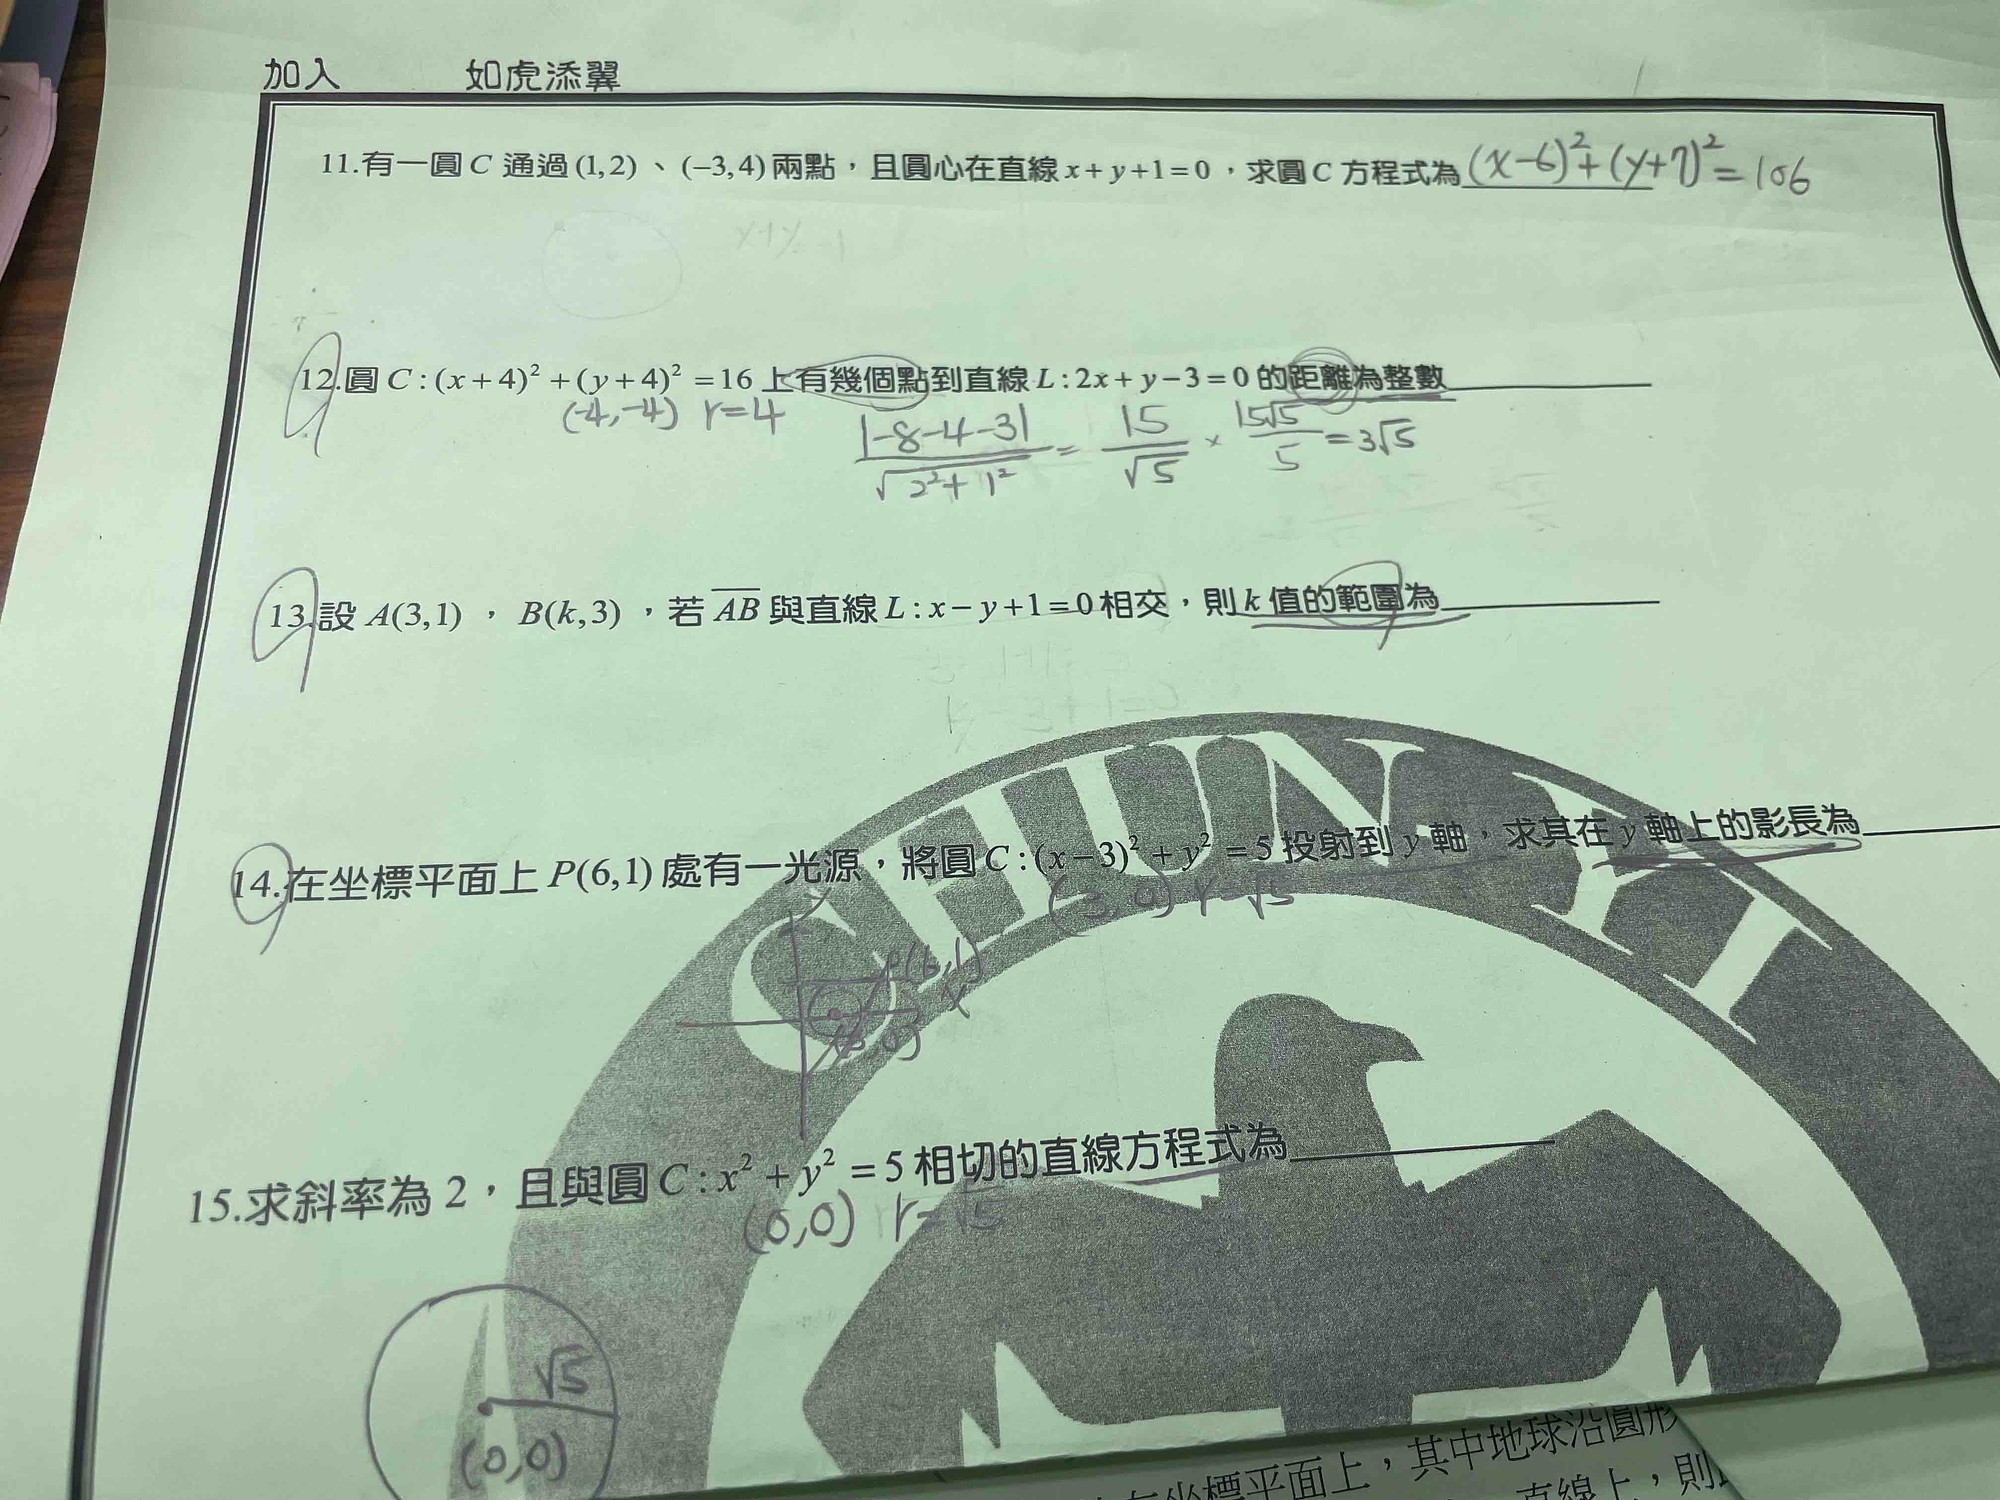 加入 如虎添翼
11.有一圓 C 通過 (1,2) 、 (−3,4) 兩點，且圓心在直線 x+y+1=0 ，求圓 C 方程式為 (x-6)²+(y+7)²=106
x+y=-1
12.圓 C:(x+4)²+(y+4)²=16 上有幾個點到直線 L:2x+y−3=0 的距離為整數
(-4,-4) r=4 |-8-4-3|/√(2²+1²) = 15/√5 × 15√5/5 =3√5
13.設 A(3,1) ， B(k,3) ，若 AB 與直線 L:x−y+1=0 相交，則 k 值的範圍為
14.在坐標平面上 P(6,1) 處有一光源，將圓 C:(x−3)²+y²=5 投射到 y 軸，求其在 y 軸上的影長為
(3,0) r=√5
y
P(6,1)
x
(3,0)
CHUN YI
15.求斜率為 2，且與圓 C:x²+y²=5 相切的直線方程式為
(0,0) r=√5
√5
(0,0)
坐標平面上，其中地球沿圓形
直線上，則